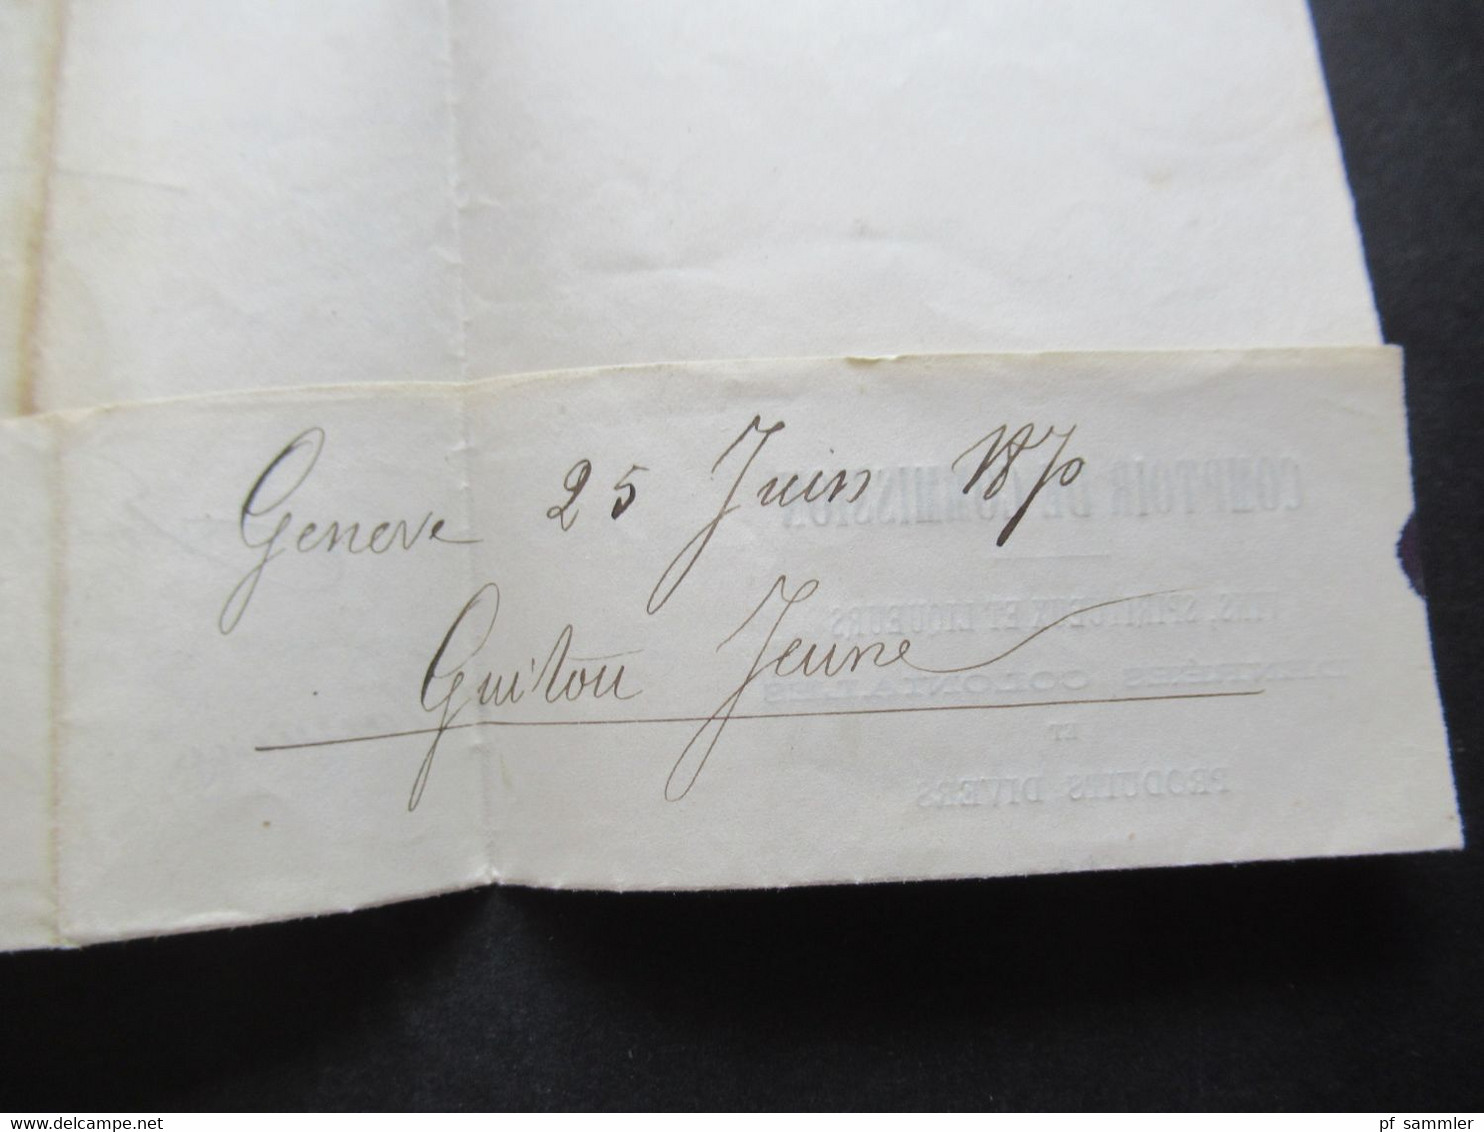 Geneve 25 Juin
Guitou Jeune
COMPTOIR DE COMMISSION
VINS, SPIRITUEUX ET LIQUEURS
DENRÉES COLONIALES
ET
PRODUITS DIVERS
delcampe.net
pf_sammler